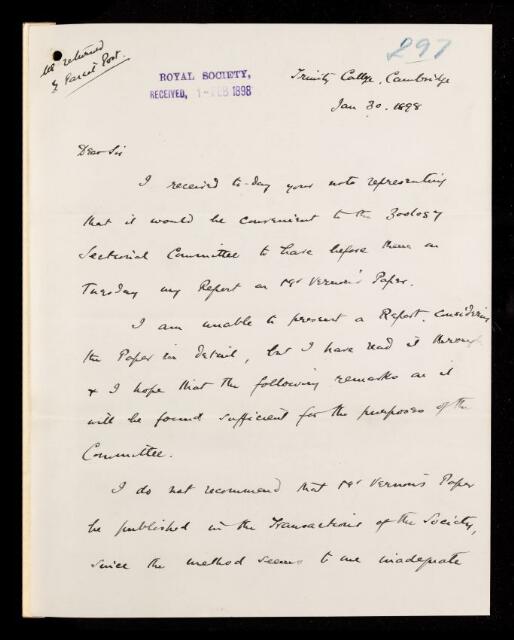 MS returned
by Parcel Post.
297
ROYAL SOCIETY,
RECEIVED, 1-FEB 1898
Trinity College, Cambridge
Jan 30. 1898
Dear Sir
I received to-day your note representing
that it would be convenient to the Zoology
Sectional Committee to have before them on
Tuesday my Report on Mr Vernon's Paper.
I am unable to present a Report, considering
the Paper in detail, but I have read it through
& I hope that the following remarks on it
will be found sufficient for the purposes of the
Committee.
I do not recommend that Mr Vernon's Paper
be published in the Transactions of the Society,
since the method seems to me inadequate